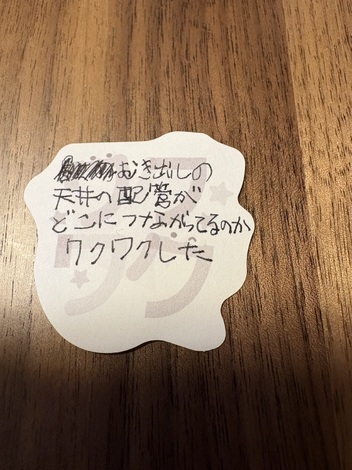 むき出しの
天井の配管が
どこにつながってるのか
ワクワクした